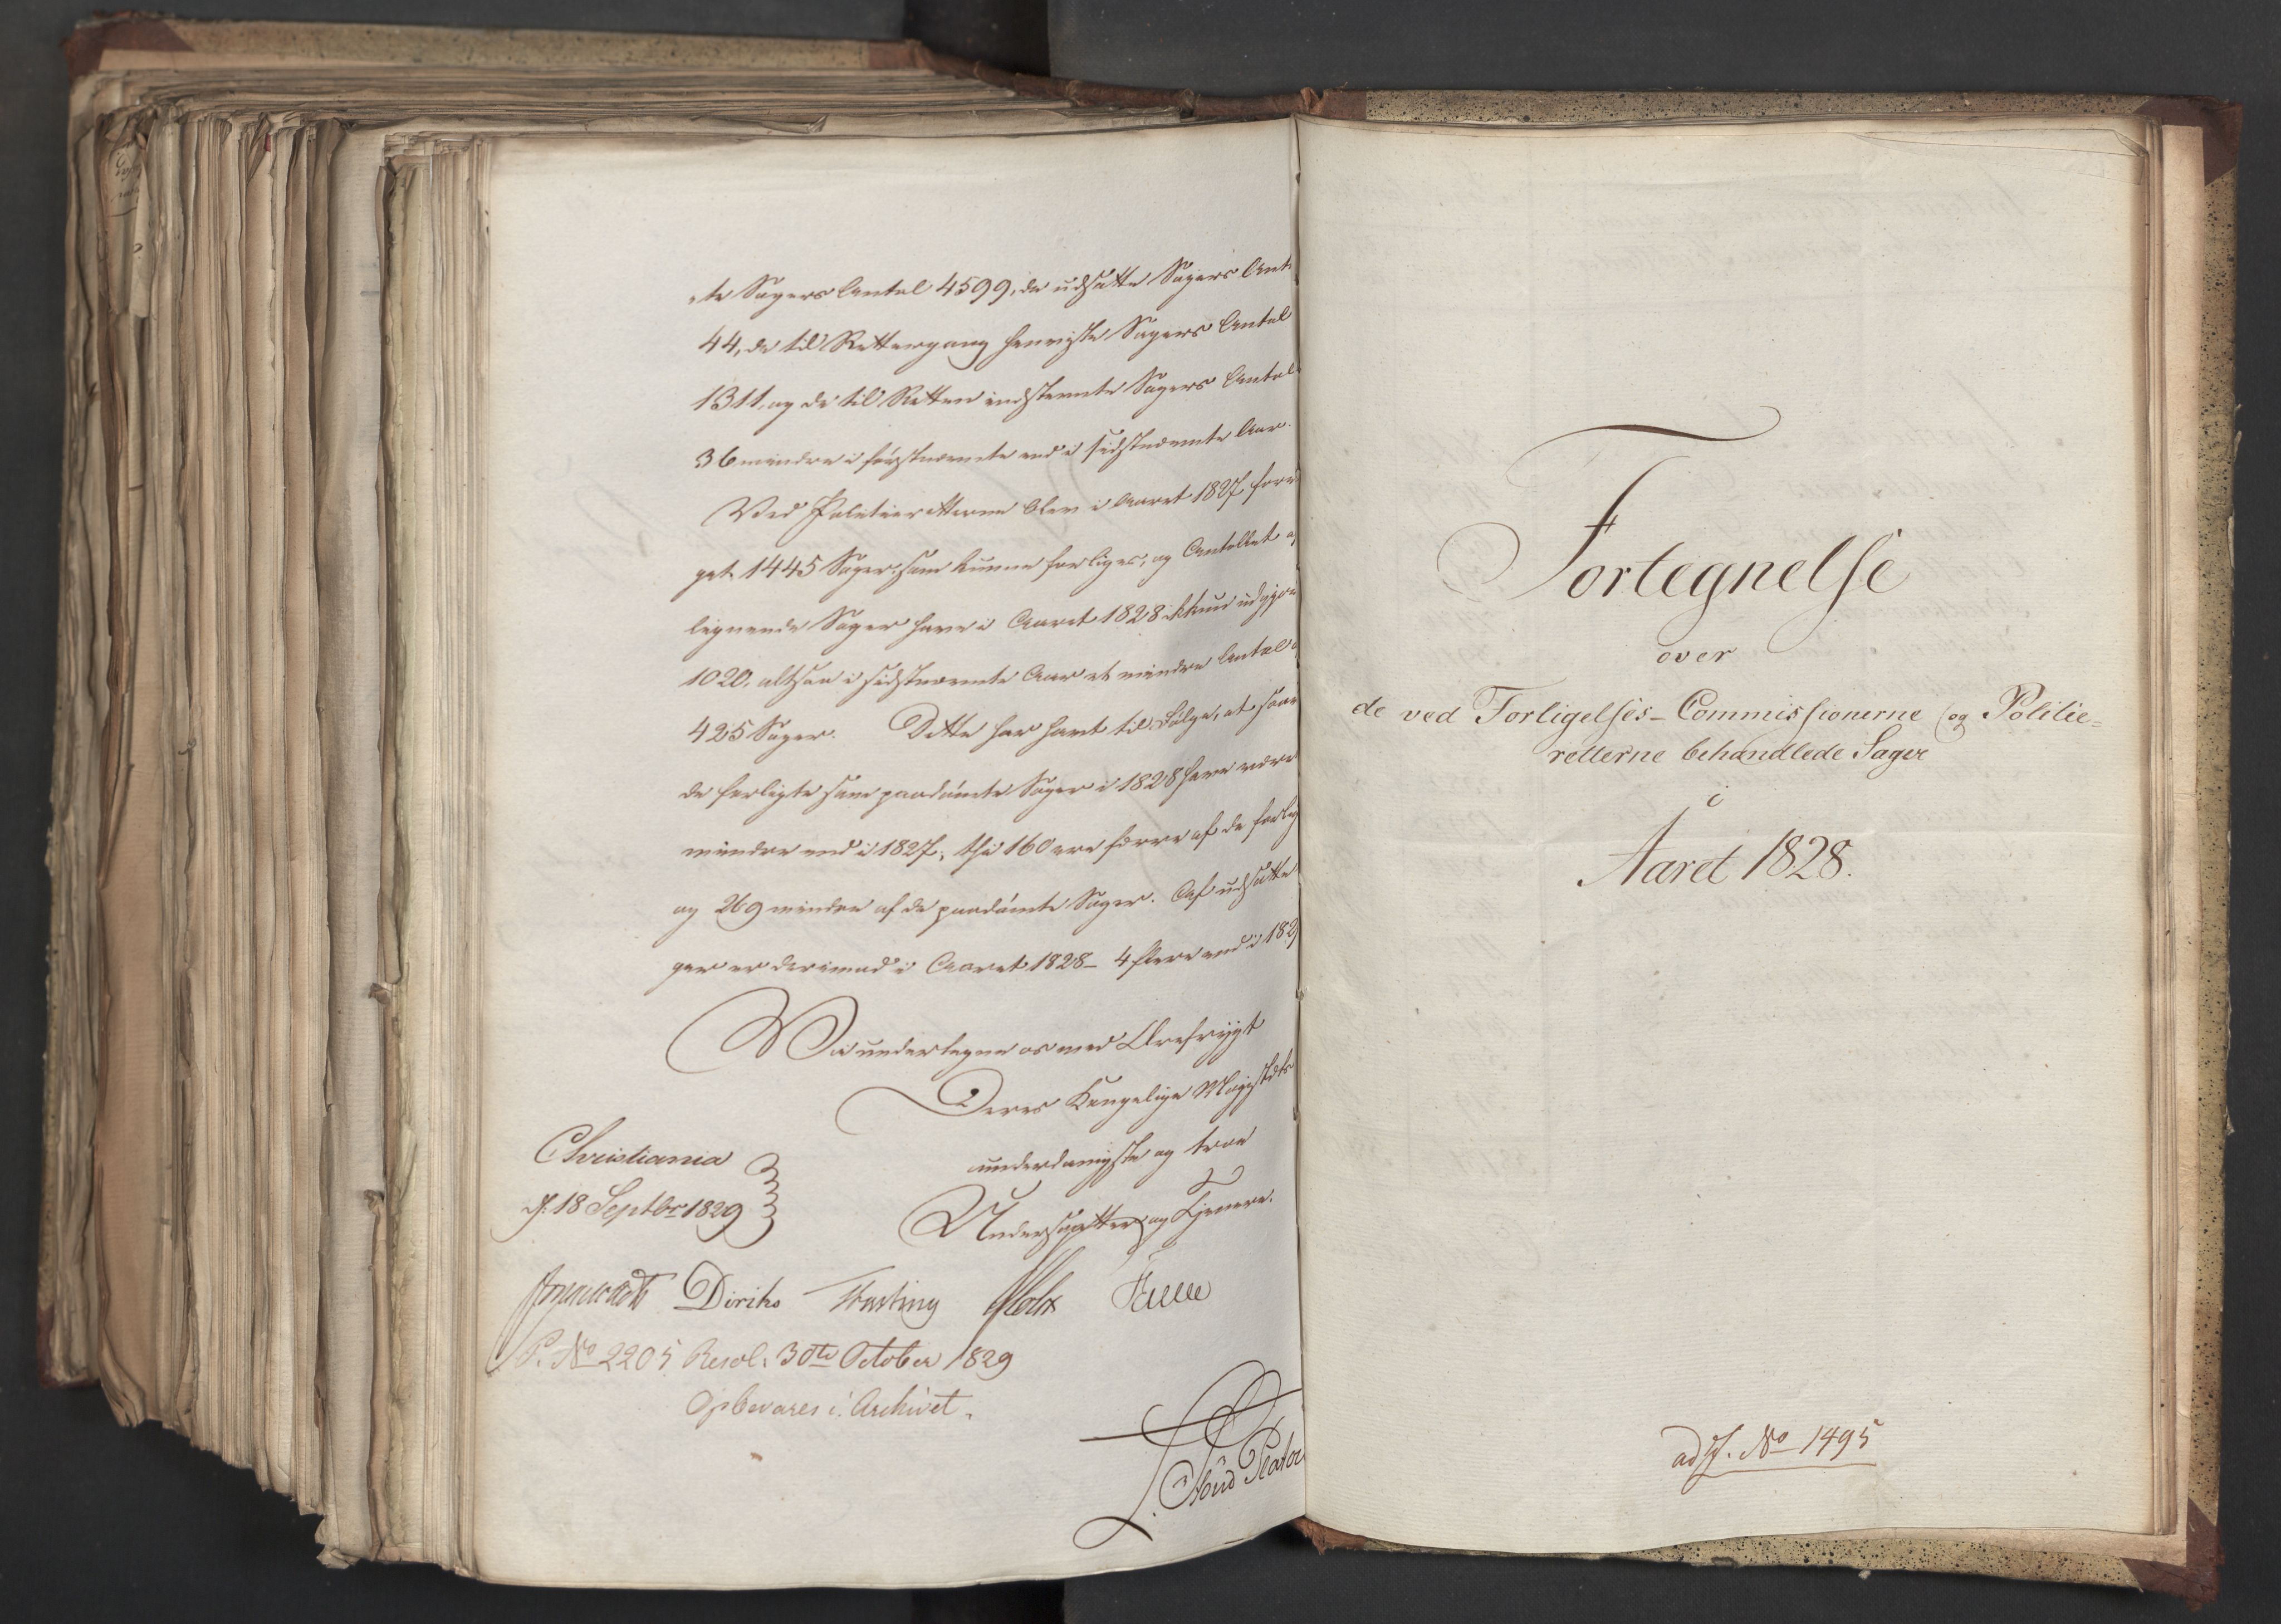 te Sagers Antal 4599, de udsatte Sagers Ant
44, de til Rettergang henviste Sagers Antal
1311, og de til Retten indstevnte Sagers Antal
36 mindre i førstnævnte end i sidstnævnte Aar.
Ved Politieretterne blev i Aaret 1827 fore
get 1445 Sager, som kunne forliges, og Antallet a
lignende Sager have i Aaret 1828 ikkun udgjor
1020, altsaa i sidstnævnte Aar et mindre Antal
425 Sager. Dette har havt til Følge, at saav
de forligte som paadømte Sager i 1828 have være
mindre end i 1827, thi 160 ere færre af de forlig
og 269 mindre af de paadømte Sager. Af udsatte
ger er derimod i Aaret 1828 - 4 flere end i 182
Vi undertegne os med Ærefrygt
Deres Kongelige Majestæts
underdanigste og troe
Undersaatter og Tjenere.
Christiania
d. 18 Septbr 1829
Diriks
P. No 2205 Resol. 30te October 1829
Opbevares i Archivet.
Fortegnelse
over
de ved Forligelses-Commissionerne og Politie=
retterne behandlede Sager
i
Aaret 1828.
ad J. No 1495